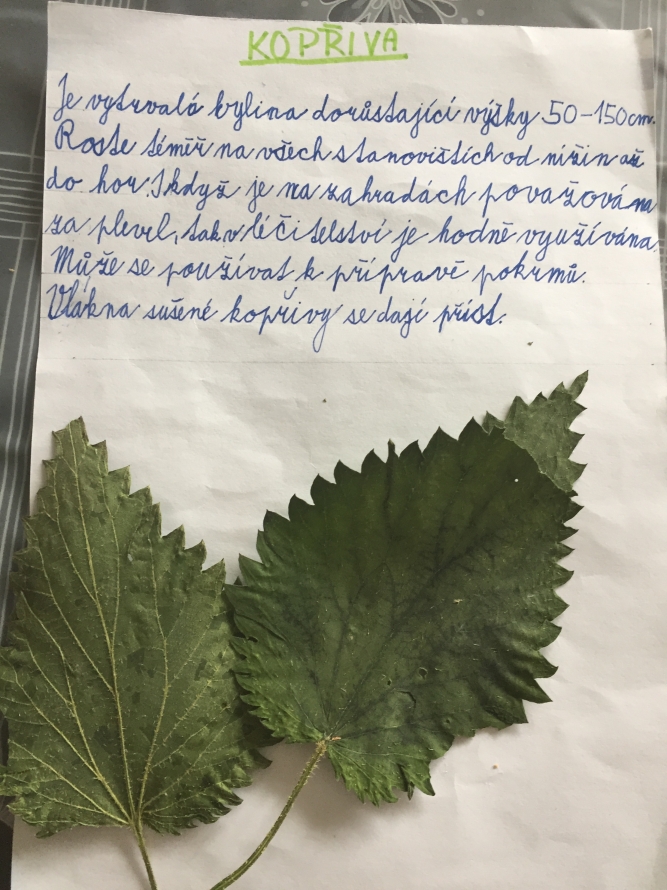 KOPŘIVA
Je vytrvalá bylina dorůstající výšky 50-150cm.
Roste téměř na všech stanovištích od nížin až
do hor. I když je na zahradách považována
za plevel, tak v léčitelství je hodně využívána.
Může se používat k přípravě pokrmů.
Vlákna sušené kopřivy se dají příst.